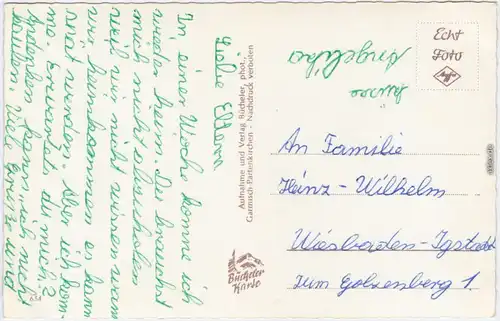 Liebe Eltern.
In einer Woche komme ich
wieder heim. Du brauchst
mich nicht abzuholen
weil wir nicht wissen wann
wir heimkommen es kann
spät werden. Aber ich kom-
me. Erwartest du mich?
Andenken kann ich nicht
kaufen. Viele Grüße und
Küsse
Angelika
Aufnahme und Verlag Bücheler, phot.,
Garmisch-Partenkirchen Nachdruck verboten
Bücheler
Karte
Echt
Foto
Agfa
An Familie
Heinz-Wilhelm
Wiesbaden-Igstadt
Zum Golzenberg 1.